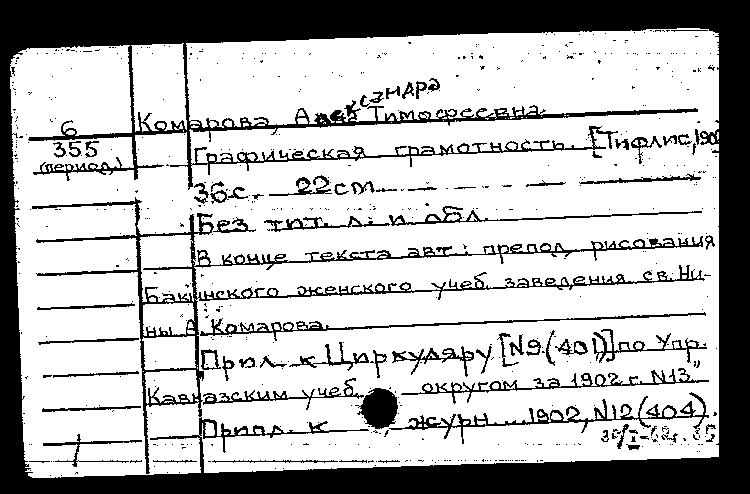 6
355
(период.)
Комарова, Александра Тимофеевна
Графическая грамотность. [Тифлис, 190
36 с. 22 cm.
Без тит. л. и обл.
В конце текста авт.: препод. рисования
Бакинского женского учеб. заведения св. Ни-
ны А. Комарова.
Прил. к Циркуляру [N9 (401)] по Упр.
Кавказским учеб. округом за 1902 г. N13"
Прил. к , журн. ... 1902, N12 (404).
30/I-62г.